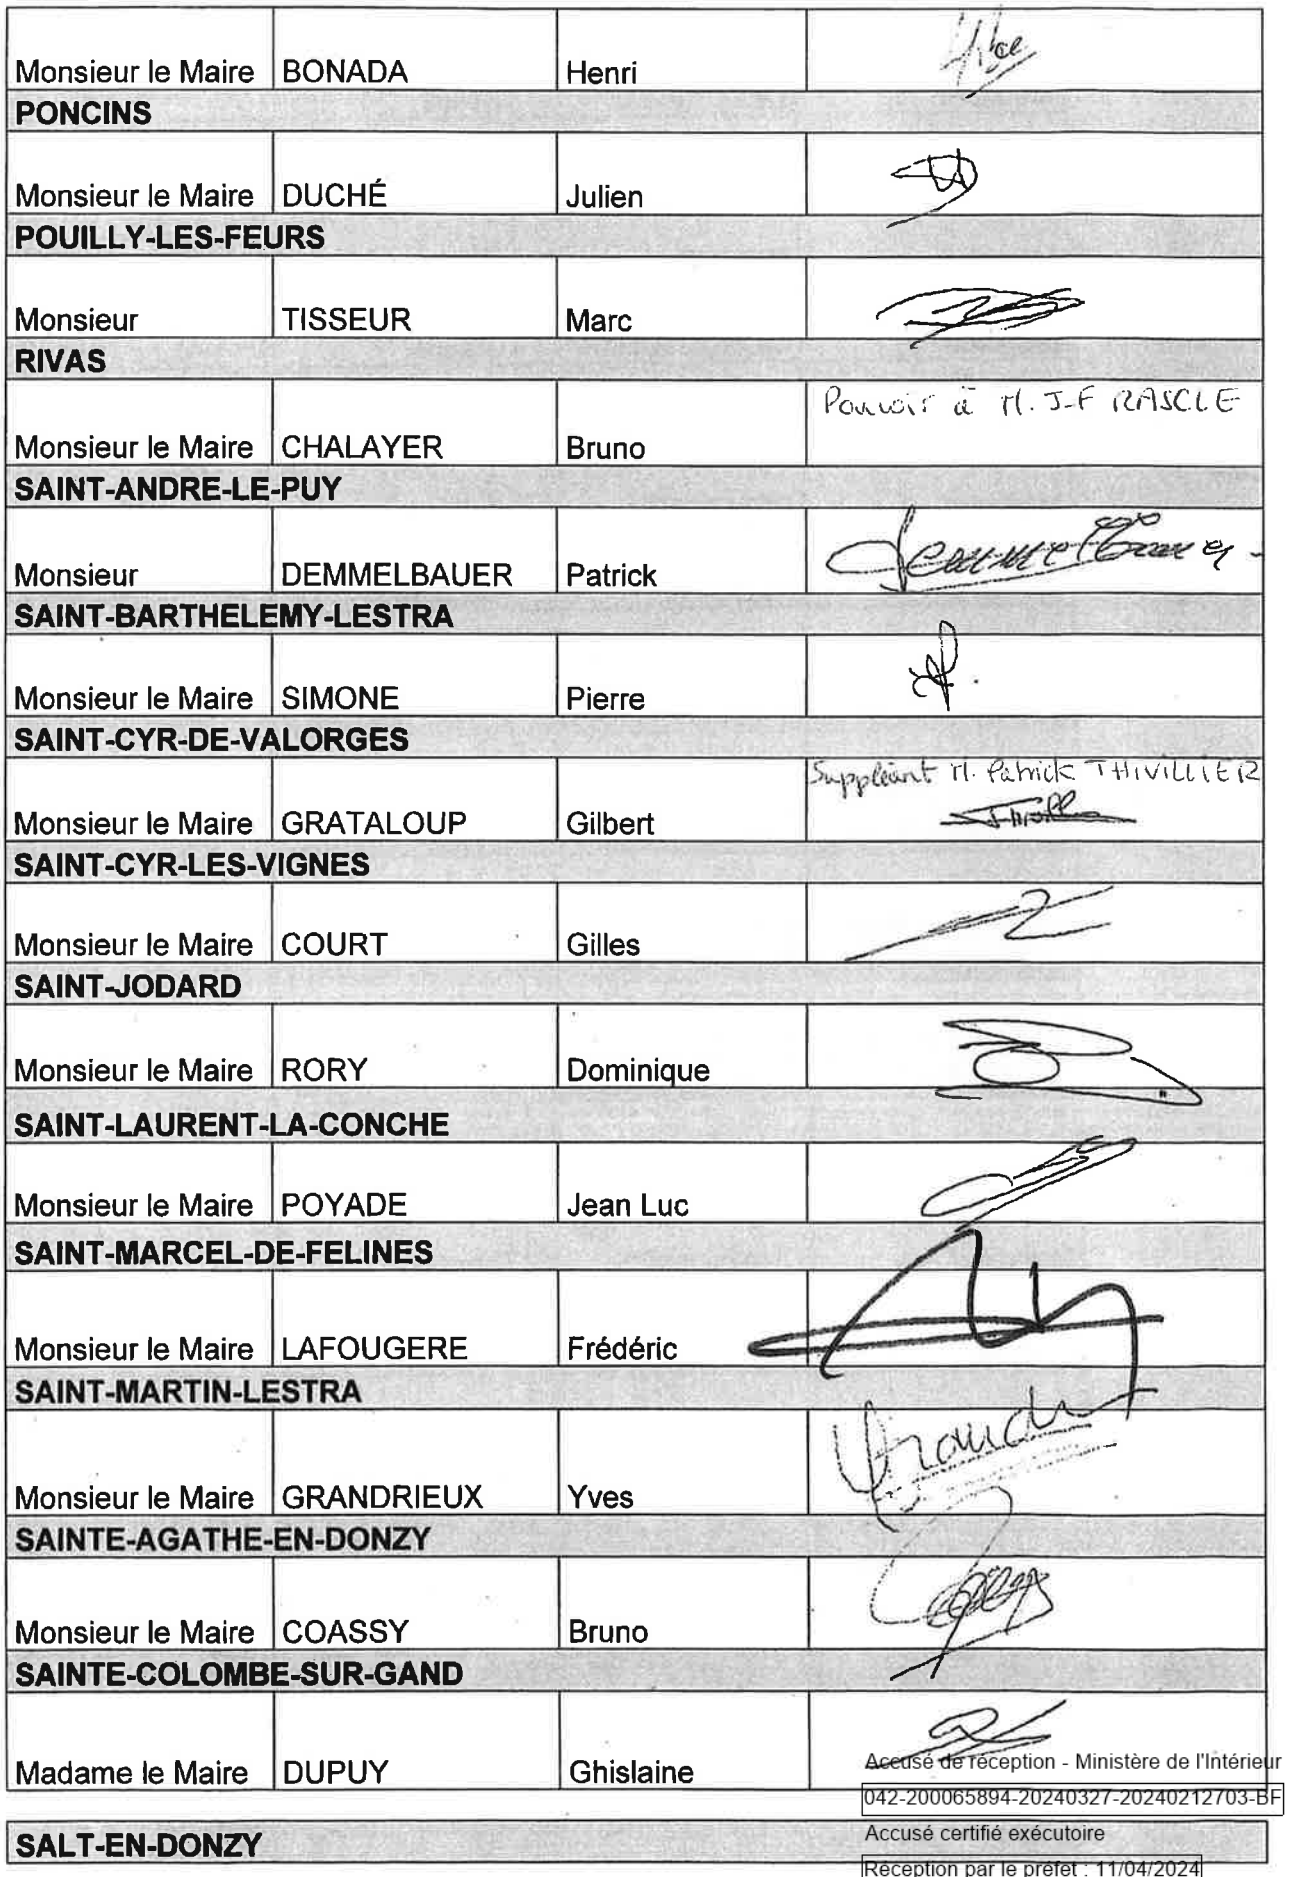 Monsieur le Maire BONADA Henri
PONCINS
Monsieur le Maire DUCHÉ Julien
POUILLY-LES-FEURS
Monsieur TISSEUR Marc
RIVAS
Pouvoir à M. J-F RASCLE
Monsieur le Maire CHALAYER Bruno
SAINT-ANDRE-LE-PUY
Monsieur DEMMELBAUER Patrick
SAINT-BARTHELEMY-LESTRA
Monsieur le Maire SIMONE Pierre
SAINT-CYR-DE-VALORGES
Suppléant M. Patrick THIVILLIER
Monsieur le Maire GRATALOUP Gilbert
SAINT-CYR-LES-VIGNES
Monsieur le Maire COURT Gilles
SAINT-JODARD
Monsieur le Maire RORY Dominique
SAINT-LAURENT-LA-CONCHE
Monsieur le Maire POYADE Jean Luc
SAINT-MARCEL-DE-FELINES
Monsieur le Maire LAFOUGERE Frédéric
SAINT-MARTIN-LESTRA
Monsieur le Maire GRANDRIEUX Yves
SAINTE-AGATHE-EN-DONZY
Monsieur le Maire COASSY Bruno
SAINTE-COLOMBE-SUR-GAND
Madame le Maire DUPUY Ghislaine
Accusé de réception - Ministère de l'Intérieur
042-200065894-20240327-20240212703-BF
SALT-EN-DONZY
Accusé certifié exécutoire
Réception par le préfet : 11/04/2024